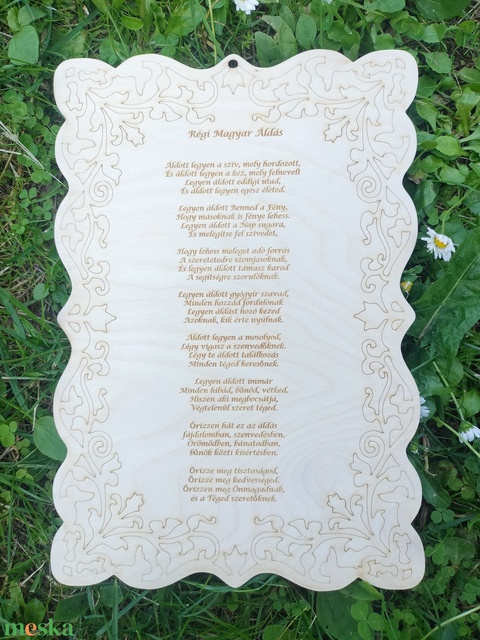 Régi Magyar Áldás
Áldott legyen a szív, mely hordozott,
És áldott legyen a kéz, mely felnevelt
Legyen áldott eddigi utad,
És áldott legyen egész életed.
Legyen áldott Benned a Fény,
Hogy másoknak is fénye lehess.
Legyen áldott a Nap sugara,
És melegítse fel szívedet,
Hogy lehess meleget adó forrás
A szeretetedre szomjasoknak,
És legyen áldott támasz karod
A segítségre szorulóknak.
Legyen áldott gyógyír szavad,
Minden hozzád fordulónak
Legyen áldást hozó kezed
Azoknak, kik érte nyúlnak.
Áldott legyen a mosolyod,
Légy vigasz a szenvedőknek.
Légy te áldott találkozás
Minden téged keresőnek.
Legyen áldott immár
Minden hibád, bűnöd, vétked.
Hiszen aki megbocsátja,
Végtelenül szeret téged.
Őrizzen hát ez az áldás
fájdalomban, szenvedésben.
Örömödben, bánatodban,
bűnök közti kísértésben.
Őrizze meg tisztaságod,
Őrizze meg kedvességed.
Őrizzen meg Önmagadnak,
és a Téged szeretőknek.
meska